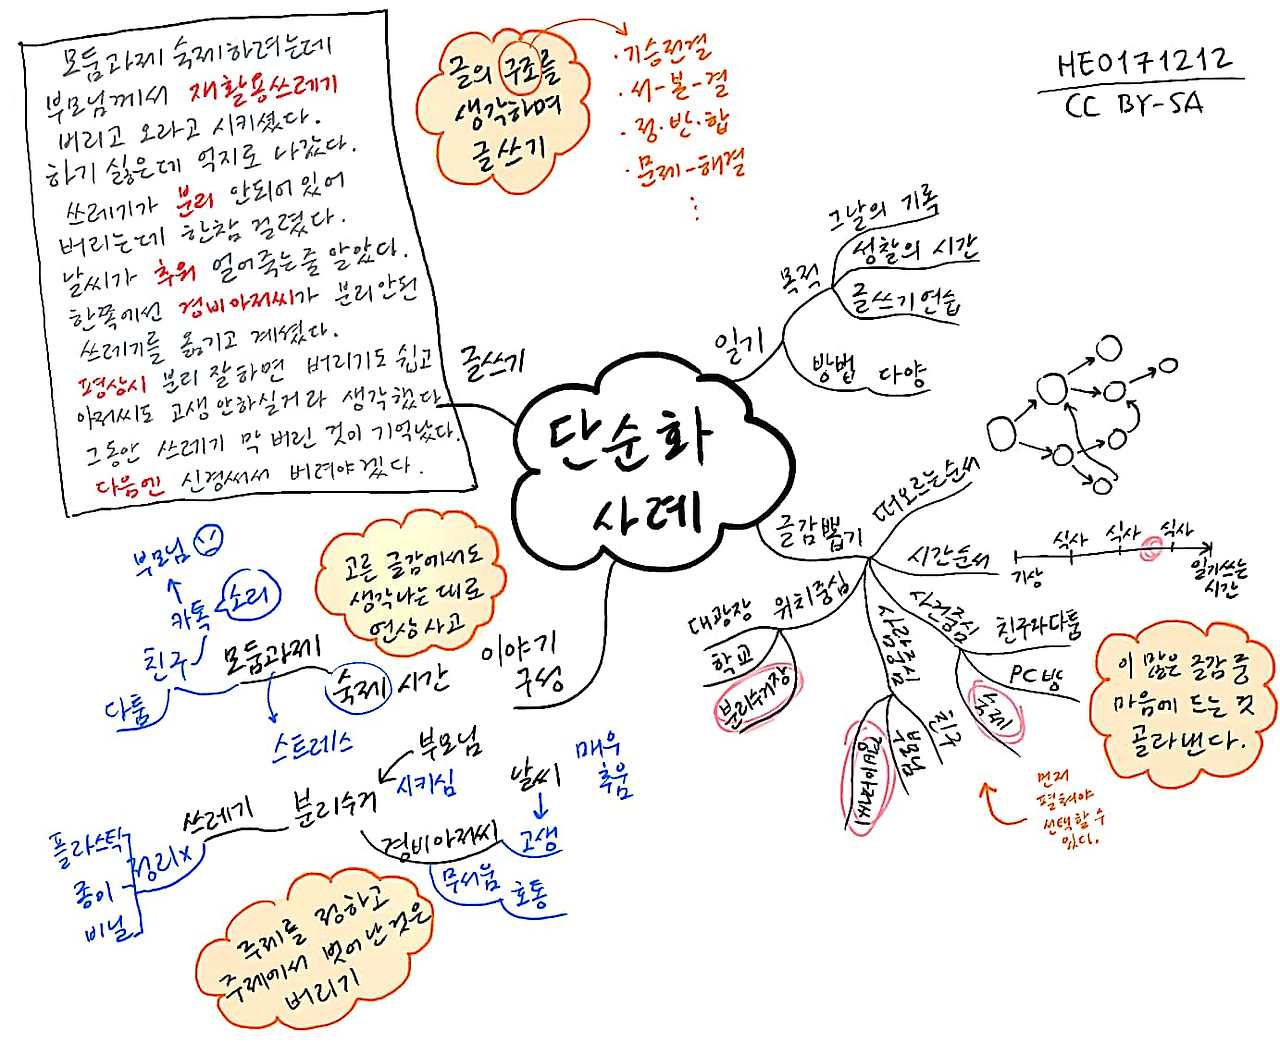 모둠과제 숙제하려는데
부모님께서 재활용쓰레기
버리고 오라고 시키셨다.
하기 싫은데 억지로 나갔다.
쓰레기가 분리 안되어 있어
버리는데 한참 걸렸다.
날씨가 추워 얼어죽는줄 알았다.
한쪽에선 경비아저씨가 분리안된
쓰레기를 옮기고 계셨다.
평상시 분리 잘하면 버리기도 쉽고
아저씨도 고생안하실거라 생각했다
그동안 쓰레기 막 버린 것이 기억났다.
다음엔 신경써서 버려야겠다.
글의 구조를
생각하며
글쓰기
·기승전결
·서-본-결
·정·반·합
·문제-해결
⋮
HE0171212
CC BY-SA
단순화
사례
글쓰기
일기
목적
그날의 기록
성찰의 시간
글쓰기연습
방법 다양
글감뽑기
떠오르는순서
시간순서
기상
식사
식사
식사
일기쓰는
시간
사건중심
친구와다툼
PC방
숙제
사람중심
친구
부모님
경비아저씨
위치중심
대광장
학교
분리수거장
이 많은 글감 중
마음에 드는 것
골라낸다.
먼저
펼쳐야
선택할 수
있다.
이야기
구성
고른 글감에서도
생각나는 대로
연상사고
숙제 시간
모둠과제
스트레스
친구
다툼
카톡
소리
부모님
부모님
시키심
분리수거
쓰레기
정리x
플라스틱
종이
비닐
경비아저씨
날씨
매우
추움
고생
무서움
호통
주제를 정하고
주제에서 벗어난것은
버리기